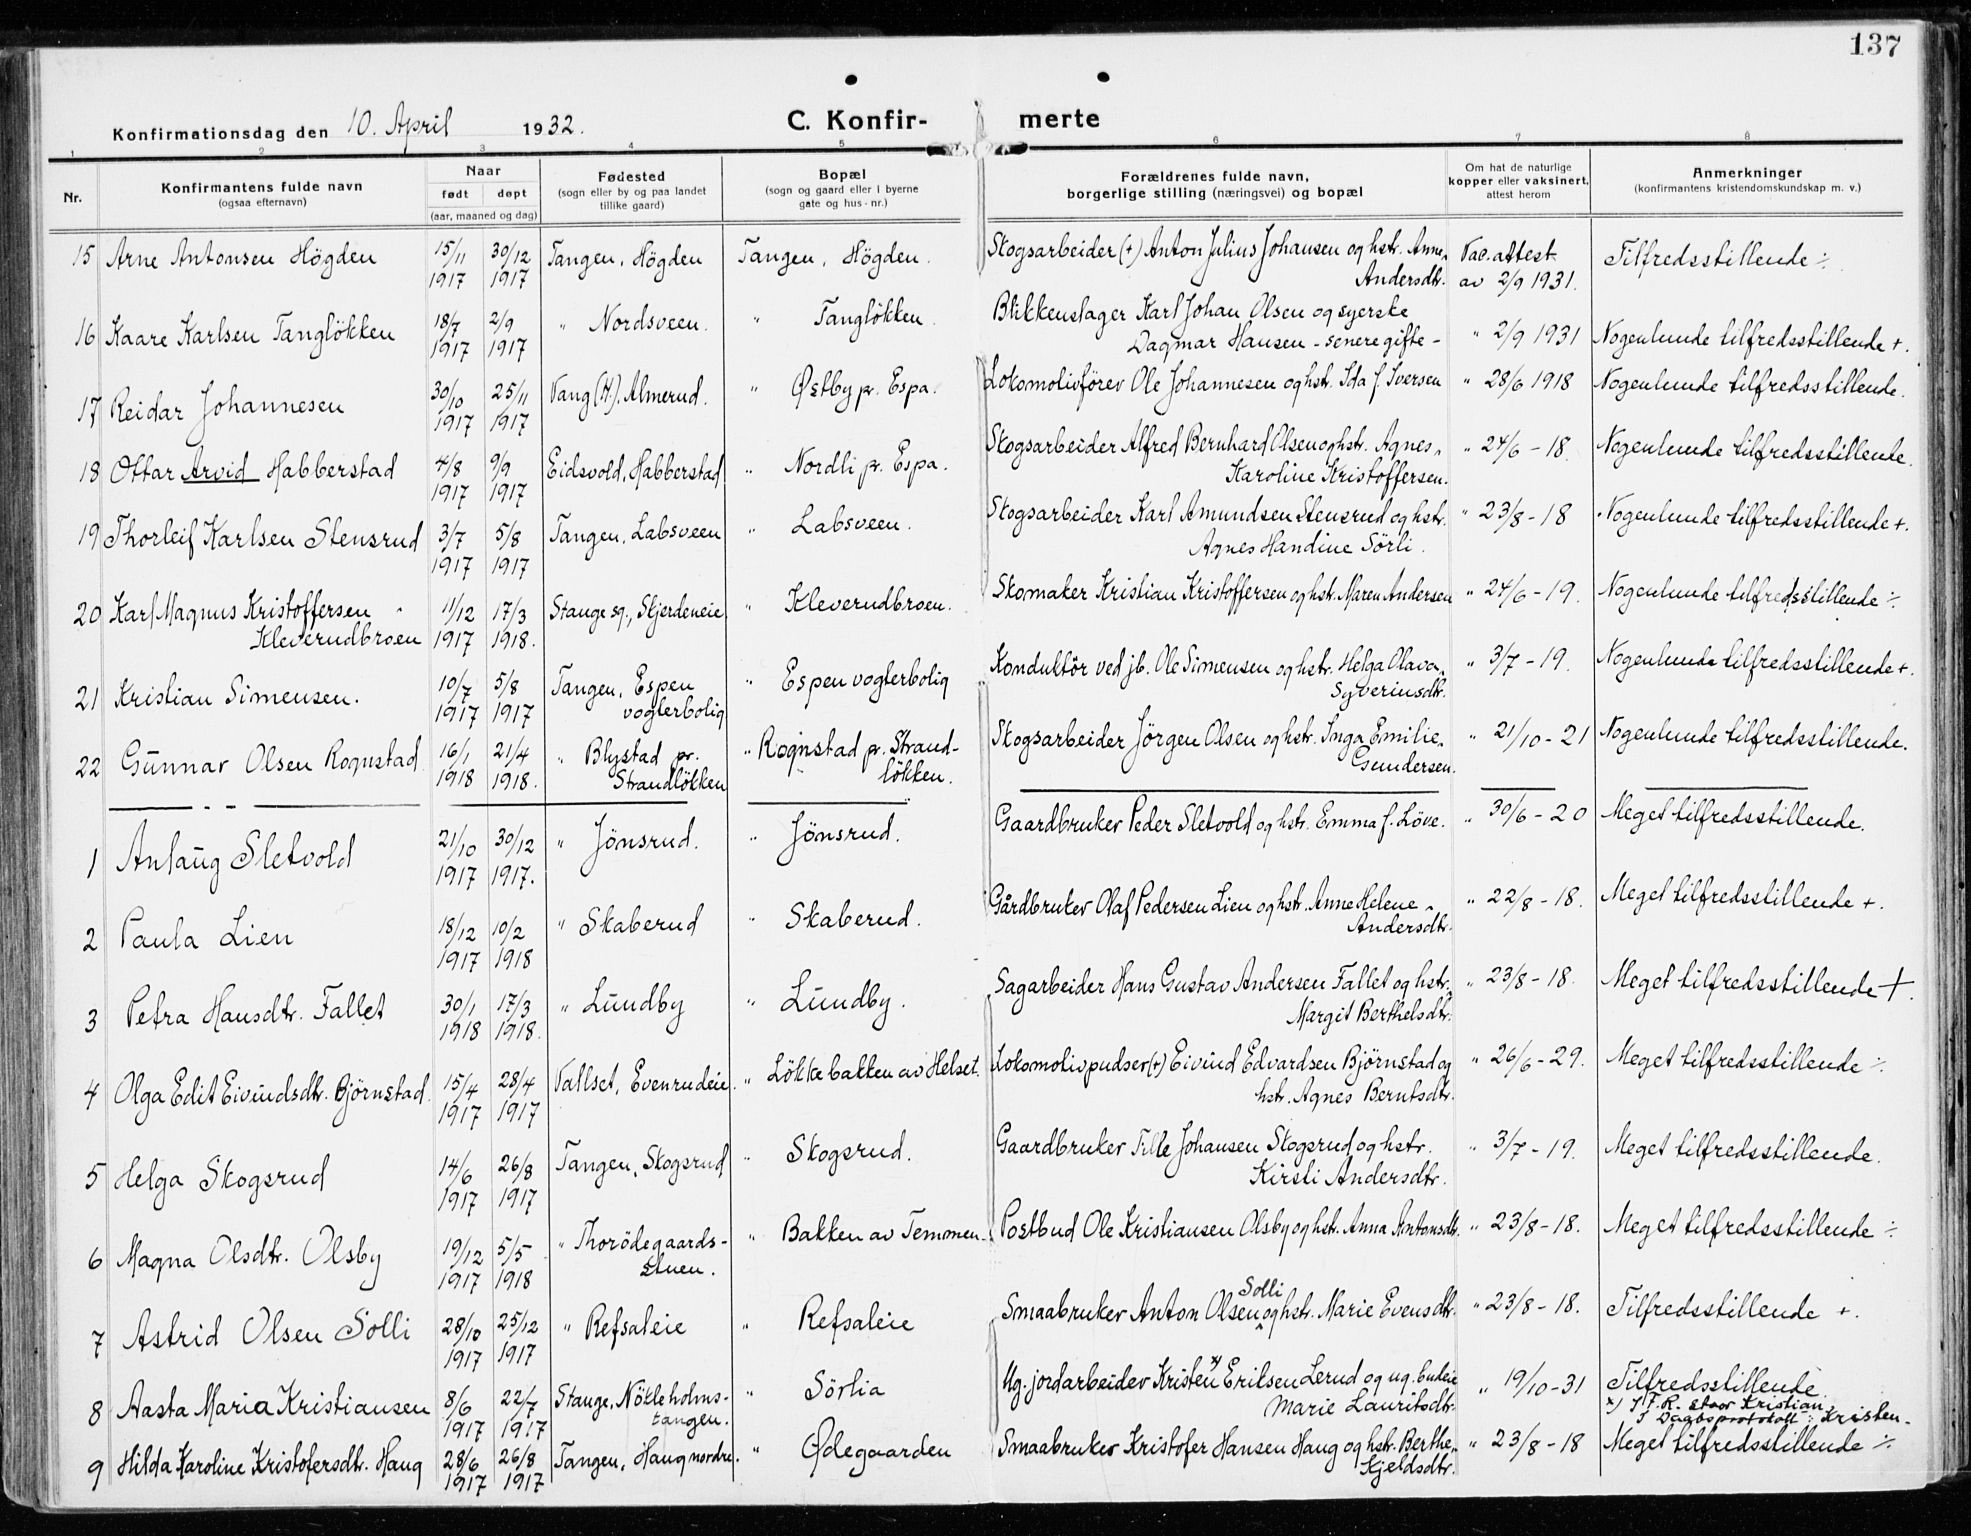 137
Konfirmationsdag den 10. April 1932. C. Konfir- merte
1 2 3 4 5 6 7 8
Nr. Konfirmantens fulde navn (ogsaa efternavn) Naar født døpt (aar, maaned og dag) Fødested (sogn eller by og paa landet tillike gaard) Bopæl (sogn og gaard eller i byerne gate og hus-nr.) Forældrenes fulde navn, borgerlige stilling (næringsvei) og bopæl Om hat de naturlige kopper eller vaksinert, attest herom Anmerkninger (konfirmantens kristendomskundskap m. v.)
15 Arne Antonsen Högden 15/11 30/12 Tangen, Högden Tangen, Högden. Skogsarbeider (+) Anton Julius Johansen og hstr. Anne- Vac. attest Tilfredsstillende ÷.
1917 1917 Andersdtr. av 2/9 1931.
16 Kaare Karlsen Tanglökken 18/7 2/9 " Nordsveen. " Tanglökken. Blikkenslager Karl Johan Olsen og syerske " 2/9 1931 Nogenlunde tilfredsstillende +.
1917 1917 Dagmar Hansen - senere gifte -
17 Reidar Johannesen 30/10 25/11 Vang (H.), Almerud. " Østby pr. Espa. Lokomotivförer Ole Johannesen og hstr. Ida f. Iversen " 28/6 1918 Nogenlunde tilfredsstillende.
1917 1917
18 Ottar Arvid Habberstad 4/8 9/9 Eidsvold, Habberstad " Nordli pr. Espa. Skogsarbeider Alfred Bernhard Olsen og hstr. Agnes- " 24/6 - 18. Nogenlunde tilfredsstillende.
1917 1917 Karoline Kristoffersen.
19 Thorleif Karlsen Stensrud 3/7 5/8 Tangen, Labsveen " Labsveen. Skogsarbeider Karl Amundsen Stensrud og hstr. " 23/8 - 18 Nogenlunde tilfredsstillende +.
1917 1917 Agnes Handine Sörli.
20 Karl Magnus Kristoffersen - 11/12 17/3 Stange sg., Skjerdeneie " Kleverudbroen. Skomaker Kristian Kristoffersen og hstr. Maren Andersen " 24/6 - 19. Nogenlunde tilfredsstillende ÷.
Kleverudbroen 1917 1918.
21 Kristian Simensen. 10/7 5/8 Tangen, Espen " Espen vogterbolig Konduktör ved jb. Ole Simensen og hstr. Helga Olava- " 3/7 - 19. Nogenlunde tilfredsstillende +.
1917 1917 vogterbolig Syverinsdtr.
22 Gunnar Olsen Rognstad 16/1 21/4 " Blystad pr. " Rognstad pr. Strand- Skogsarbeider Jörgen Olsen og hstr. Inga Emilie- " 21/10 - 21 Nogenlunde tilfredsstillende.
1918 1918. Strandlökken lökken. Gundersen.
1 Anlaug Sletvold 21/10 30/12 " Jönsrud. " Jönsrud. Gaardbruker Peder Sletvold og hstr. Emma f. Löve. " 30/6 - 20 Meget tilfredsstillende.
1917 1917.
2 Paula Lien 18/12 10/2 " Skaberud " Skaberud. Gårdbruker Olaf Pedersen Lien og hstr. Anne Helene- " 22/8 - 18. Meget tilfredsstillende +.
1917 1918 Andersdtr.
3 Petra Hansdtr. Fallet 30/1 17/3 " Lundby " Lundby. Sagarbeider Hans Gustav Andersen Fallet og hstr. " 23/8 - 18. Meget tilfredsstillende +.
1918 1918. Margit Berthelsdtr.
4 Olga Edit Eivindsdtr. Björnstad. 15/4 28/4 Vallset, Evenrudeie. " Lökkebakken av Helset. Lokomotivpudser (+) Eivind Edvardsen Björnstad og " 26/6 - 29. Meget tilfredsstillende ÷.
1917 1917 hstr. Agnes Berntsdtr.
5 Helga Skogsrud 14/6 26/8 Tangen, Skogsrud " Skogsrud. Gaardbruker Tille Johansen Skogsrud og hstr. " 3/7 - 19. Meget tilfredsstillende.
1917 1917 Kirsti Andersdtr.
6 Magna Olsdtr. Olsby 19/12 5/5 " Thorödegaards- " Bakken av Temmen. Postbud Ole Kristiansen Olsby og hstr. Anna Antonsdtr. " 23/8 - 18. Meget tilfredsstillende ÷
1917 1918 stuen.
7 Astrid Olsen Solli 28/10 25/12 " Refsaleie " Refsaleie Smaabruker Anton Olsen Solli og hstr. Marie Evensdtr. " 23/8 - 18. Tilfredsstillende +.
1917 1917
8 Aasta Maria Kristiansen 8/6 22/7 Stange, Nötleholms- " Sörlia Ug. jordarbeider Kristen x) Eriksen Lerud og ug. budeie " 19/10 - 31 Tilfredsstillende.
1917 1917 tangen. Marie Lauritsdtr. x) I F. R. staar Kristian,
I Daabsprotokoll: Kristen.
9 Hilda Karoline Kristofersdtr. Haug 28/6 26/8 Tangen, Haug nordre. " Ødegaarden Smaabruker Kristofer Hansen Haug og hstr. Berthe- " 23/8 - 18 Meget tilfredsstillende ÷
1917 1917 Kjeldsdtr.